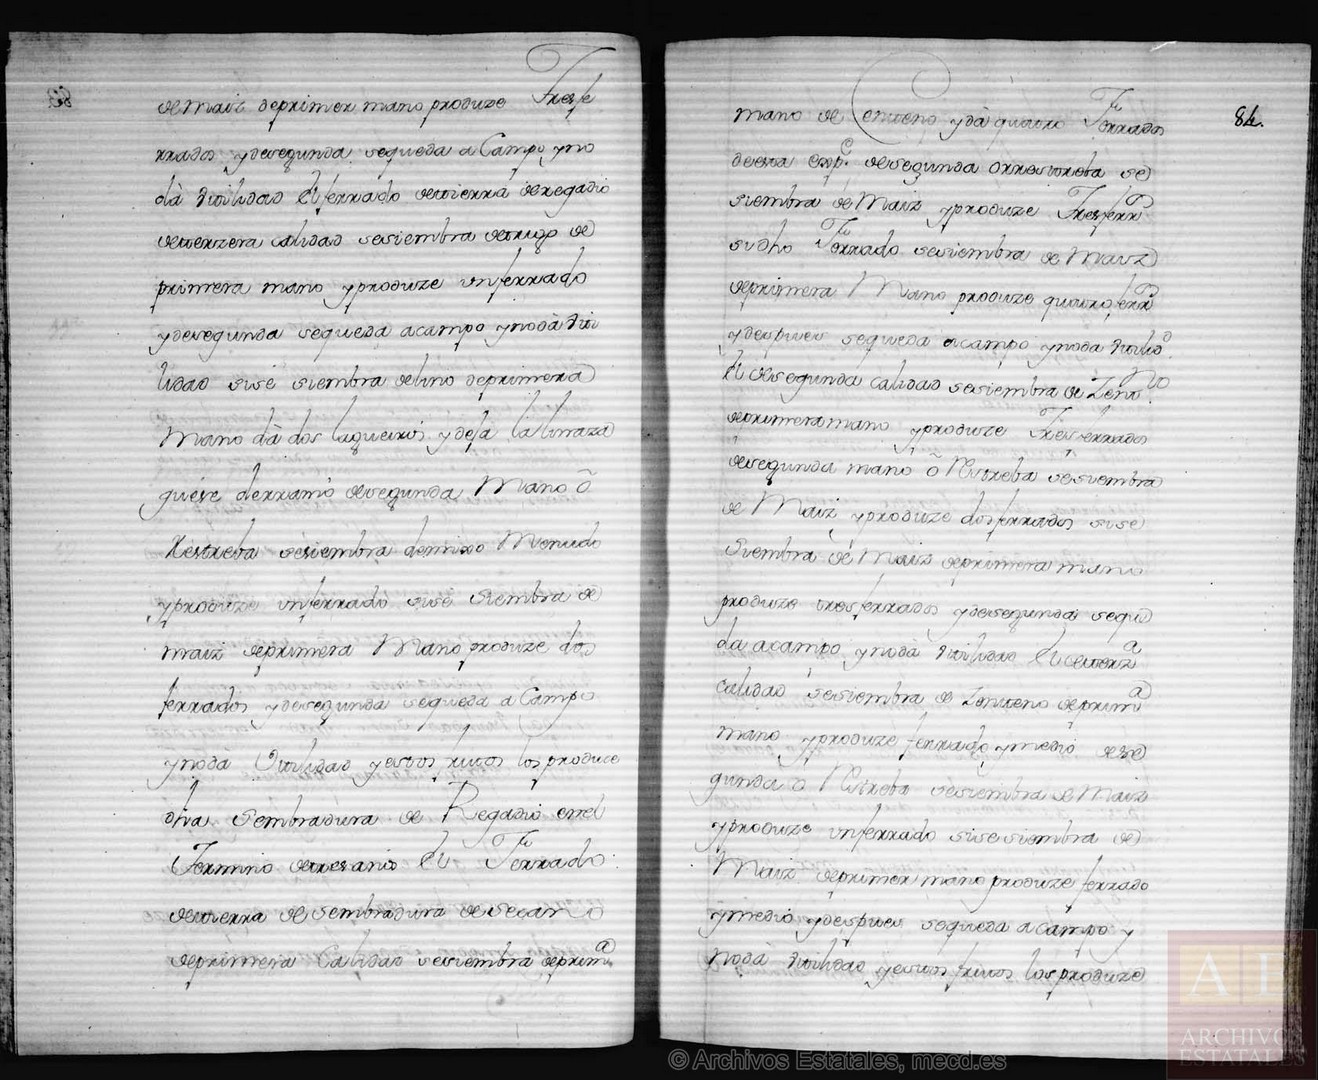 de Maiz de primer mano produze Tres fe
rrados y de segunda se queda a Campo y no
dà Utilidad El ferrado de tierra de regadio
de terzera calidad se siembra de trigo de
primera mano y produze un ferrado
y de segunda se queda a campo y no dà Uti
lidad si se siembra de lino de primera
Mano dà dos
y de
de segunda Mano ô
Restreba se siembra de mixo Menudo
y produze un ferrado si se Siembra de
maiz de primera Mano produze dos
ferrados y de segunda se queda a Campo
y no dà Utilidad y estos frutos los produce
dha Sembradura de Regadio en el
Termino de tres anos El Ferrado
de tierra de Sembradura de secano
de primera Calidad se siembra de prim.ª
84.
mano de Centeno y dà quatro Ferrados
de esta esp.e de segunda o rrestreba se
siembra de Maiz y produze Tres ferr.os
si dho Ferrado se siembra de Maiz
de primera Mano produze quatro ferr.os
y despues se queda a campo y no da Utilid.d
El de segunda calidad se siembra de Zenteno
de primera mano y produze Tres ferrados
de segunda mano ô Restreba se siembra
de Maiz y produze dos ferrados si se
Siembra de Maiz de primera mano
produze tres ferrados y de segunda se que
da a campo y no dà Utilidad El de terz.ª
calidad se siembra de Zenteno de prim.ª
mano y produze ferrado y medio de se
gunda ô Restreba se siembra de Maiz
y produze un ferrado si se siembra de
Maiz de primer mano produze ferrado
y medio y despues se queda a campo y
no dà Utilidad y estos frutos los produze
© Archivos Estatales, mecd.es
AE
ARCHIVOS
ESTATALES